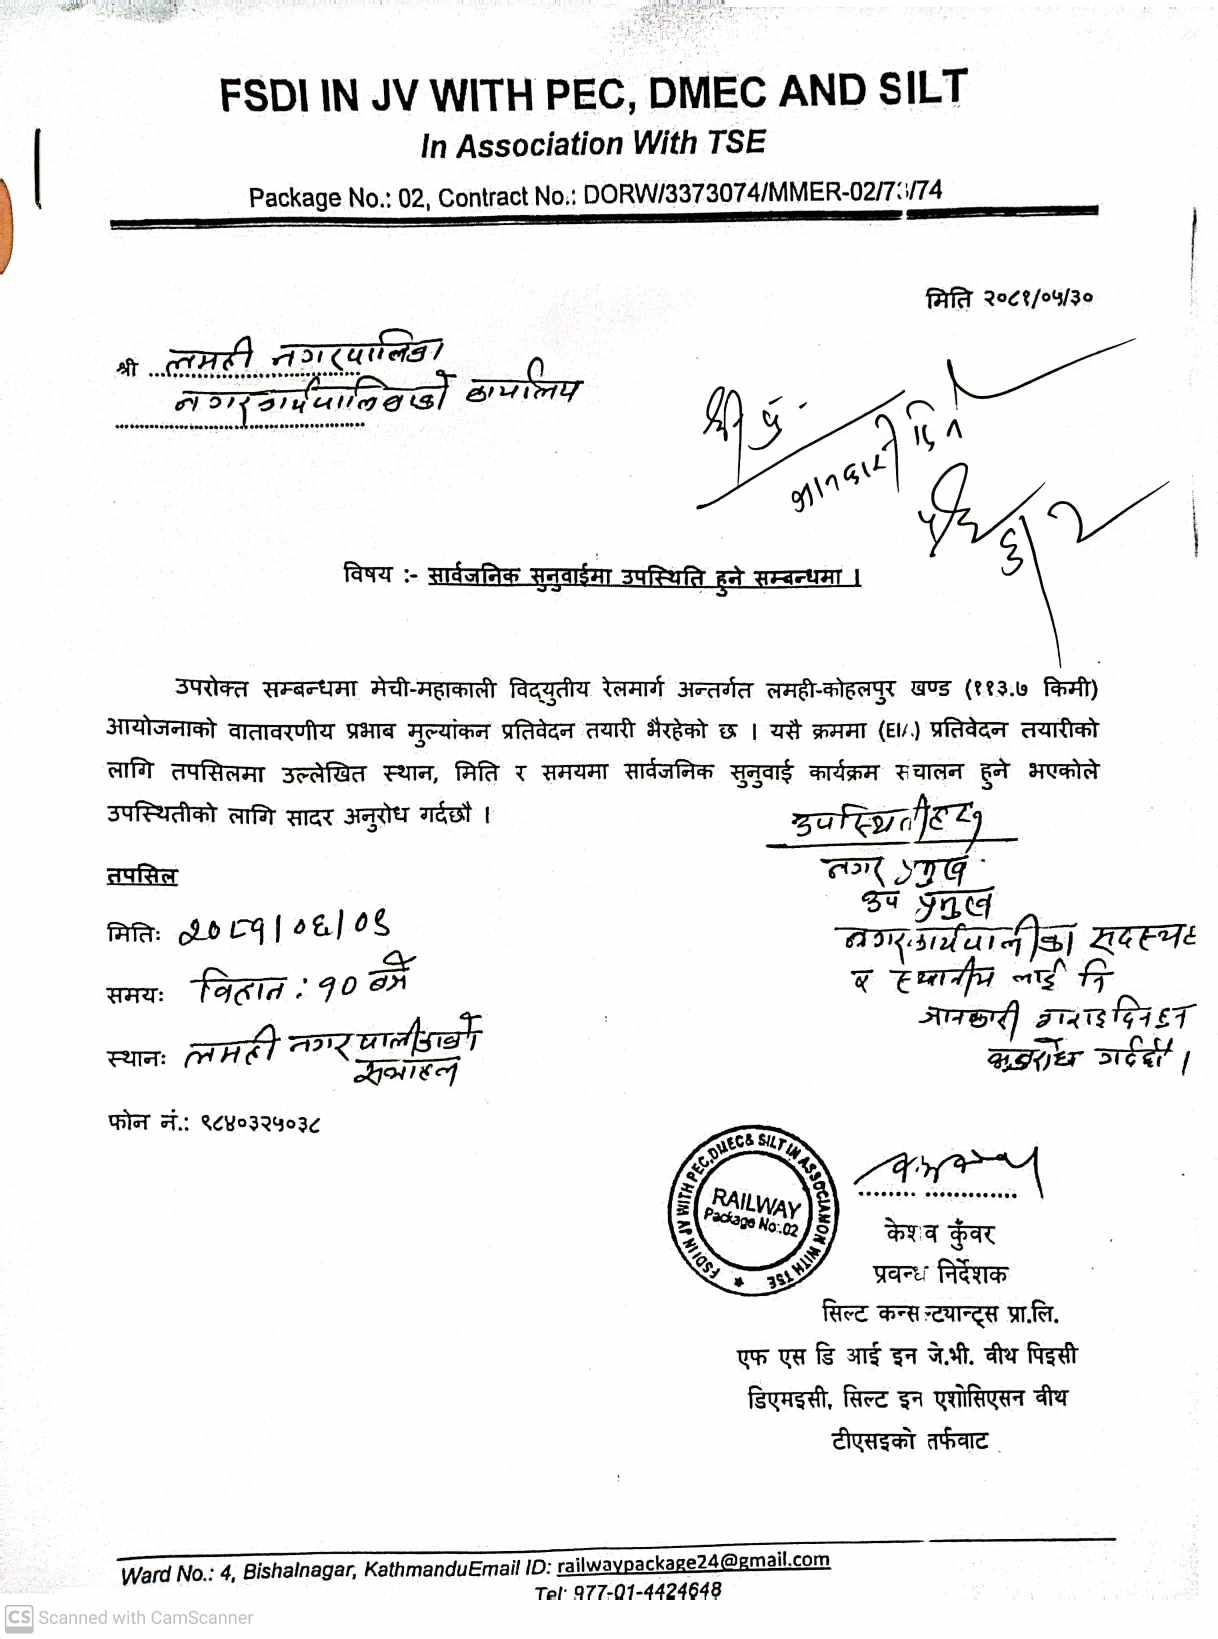 FSDI IN JV WITH PEC, DMEC AND SILT
In Association With TSE
Package No.: 02, Contract No.: DORW/3373074/MMER-02/73/74
मिति २०८१/०५/३०
श्री लमही नगरपालिका
नगरकार्यपालिकाको कार्यालय
श्री
जानकारी दिन
विषय :- सार्वजनिक सुनुवाईमा उपस्थिति हुने सम्बन्धमा ।
उपरोक्त सम्बन्धमा मेची-महाकाली विद्युतीय रेलमार्ग अन्तर्गत लमही-कोहलपुर खण्ड (११३.७ किमी)
आयोजनाको वातावरणीय प्रभाव मुल्यांकन प्रतिवेदन तयारी भैरहेको छ । यसै क्रममा (EIA) प्रतिवेदन तयारीको
लागि तपसिलमा उल्लेखित स्थान, मिति र समयमा सार्वजनिक सुनुवाई कार्यक्रम संचालन हुने भएकोले
उपस्थितीको लागि सादर अनुरोध गर्दछौ ।
तपसिल
मितिः २०८१।०६।०९
समयः विहान : १० बजे
स्थानः लमही नगरपालीकाको
सभाहल
फोन नं.: ९८४०३२५०३८
उपस्थितीहरु
नगर प्रमुख
उप प्रमुख
नगरकार्यपालीका सदस्यह
र स्थानीय लाई नि
जानकारी गराइदिनहुन
अनुरोध गर्दछौं ।
FSDI IN JV WITH PEC,DMEC& SILT IN ASSOCIATION WITH TSE
RAILWAY
Package No:.02
केशव कुँवर
प्रवन्ध निर्देशक
सिल्ट कन्सल्ट्यान्ट्स प्रा.लि.
एफ एस डि आई इन जे.भी. वीथ पिइसी
डिएमइसी, सिल्ट इन एशोसिएसन वीथ
टीएसइको तर्फवाट
Ward No.: 4, Bishalnagar, KathmanduEmail ID: railwaypackage24@gmail.com
Tel: 977-01-4424648
CS Scanned with CamScanner